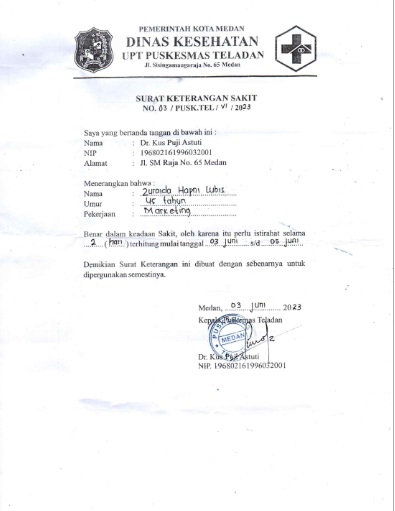 PEMERINTAH KOTA MEDAN
DINAS KESEHATAN
UPT PUSKESMAS TELADAN
Jl. Sisingamangaraja No. 65 Medan
SURAT KETERANGAN SAKIT
NO. 03 / PUSK.TEL / VI / 2023
Saya yang bertanda tangan di bawah ini :
Nama : Dr. Kus Puji Astuti
NIP : 196802161996032001
Alamat : Jl. SM Raja No. 65 Medan
Menerangkan bahwa :
Nama : Zuraida Hapni Lubis
Umur : 45 tahun
Pekerjaan : Marketing
Benar dalam keadaan Sakit, oleh karena itu perlu istirahat selama
2 ( hari ) terhitung mulai tanggal 03 Juni s/d 05 Juni
Demikian Surat Keterangan ini dibuat dengan sebenarnya untuk
dipergunakan semestinya.
Medan, 03 Juni 2023
Kepala Puskesmas Teladan
MEDAN
Dr. Kus Puji Astuti
NIP. 196802161996032001